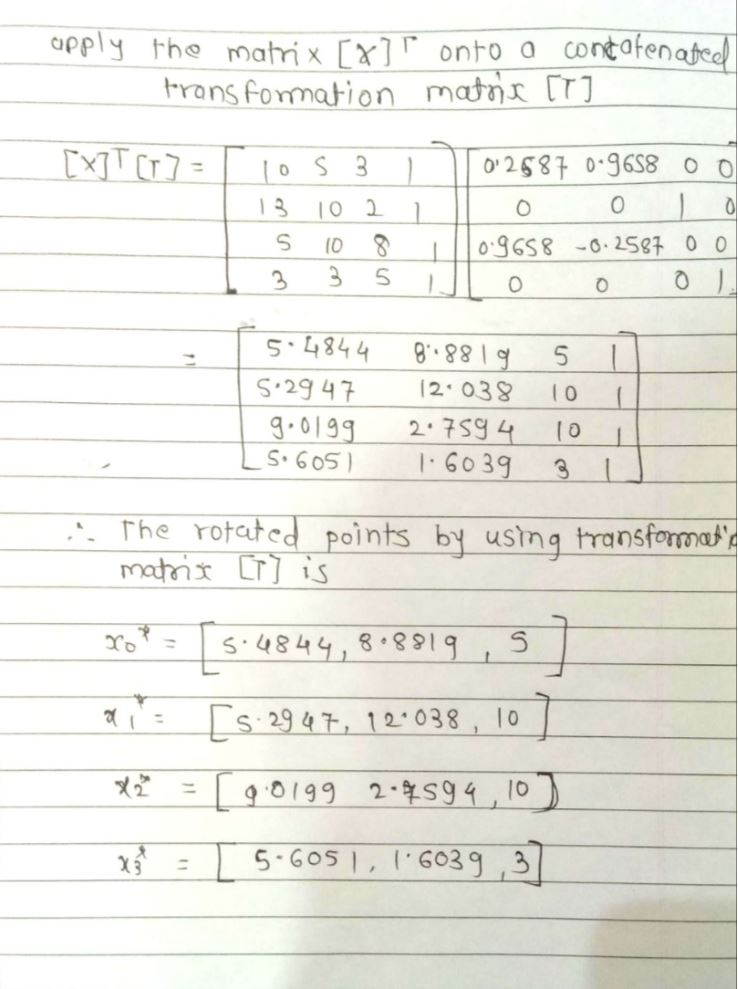 apply the matrix [X]ᵀ onto a concatenated
transformation matrix [T]
[X]ᵀ[T] = [ 10 5 3 1 ] [ 0.2587 0.9658 0 0
13 10 2 1 0 0 1 0
5 10 8 1 0.9658 -0.2587 0 0
3 3 5 1 0 0 0 1
= [ 5.4844 8.8819 5 1 ]
5.2947 12.038 10 1
9.0199 2.7594 10 1
5.6051 1.6039 3 1
∴ The rotated points by using
matrix [T] is
x₀* = [5.4844, 8.8819, 5]
x₁* = [5.2947, 12.038, 10]
x₂* = [9.0199 2.7594, 10]
x₃* = [5.6051, 1.6039, 3]